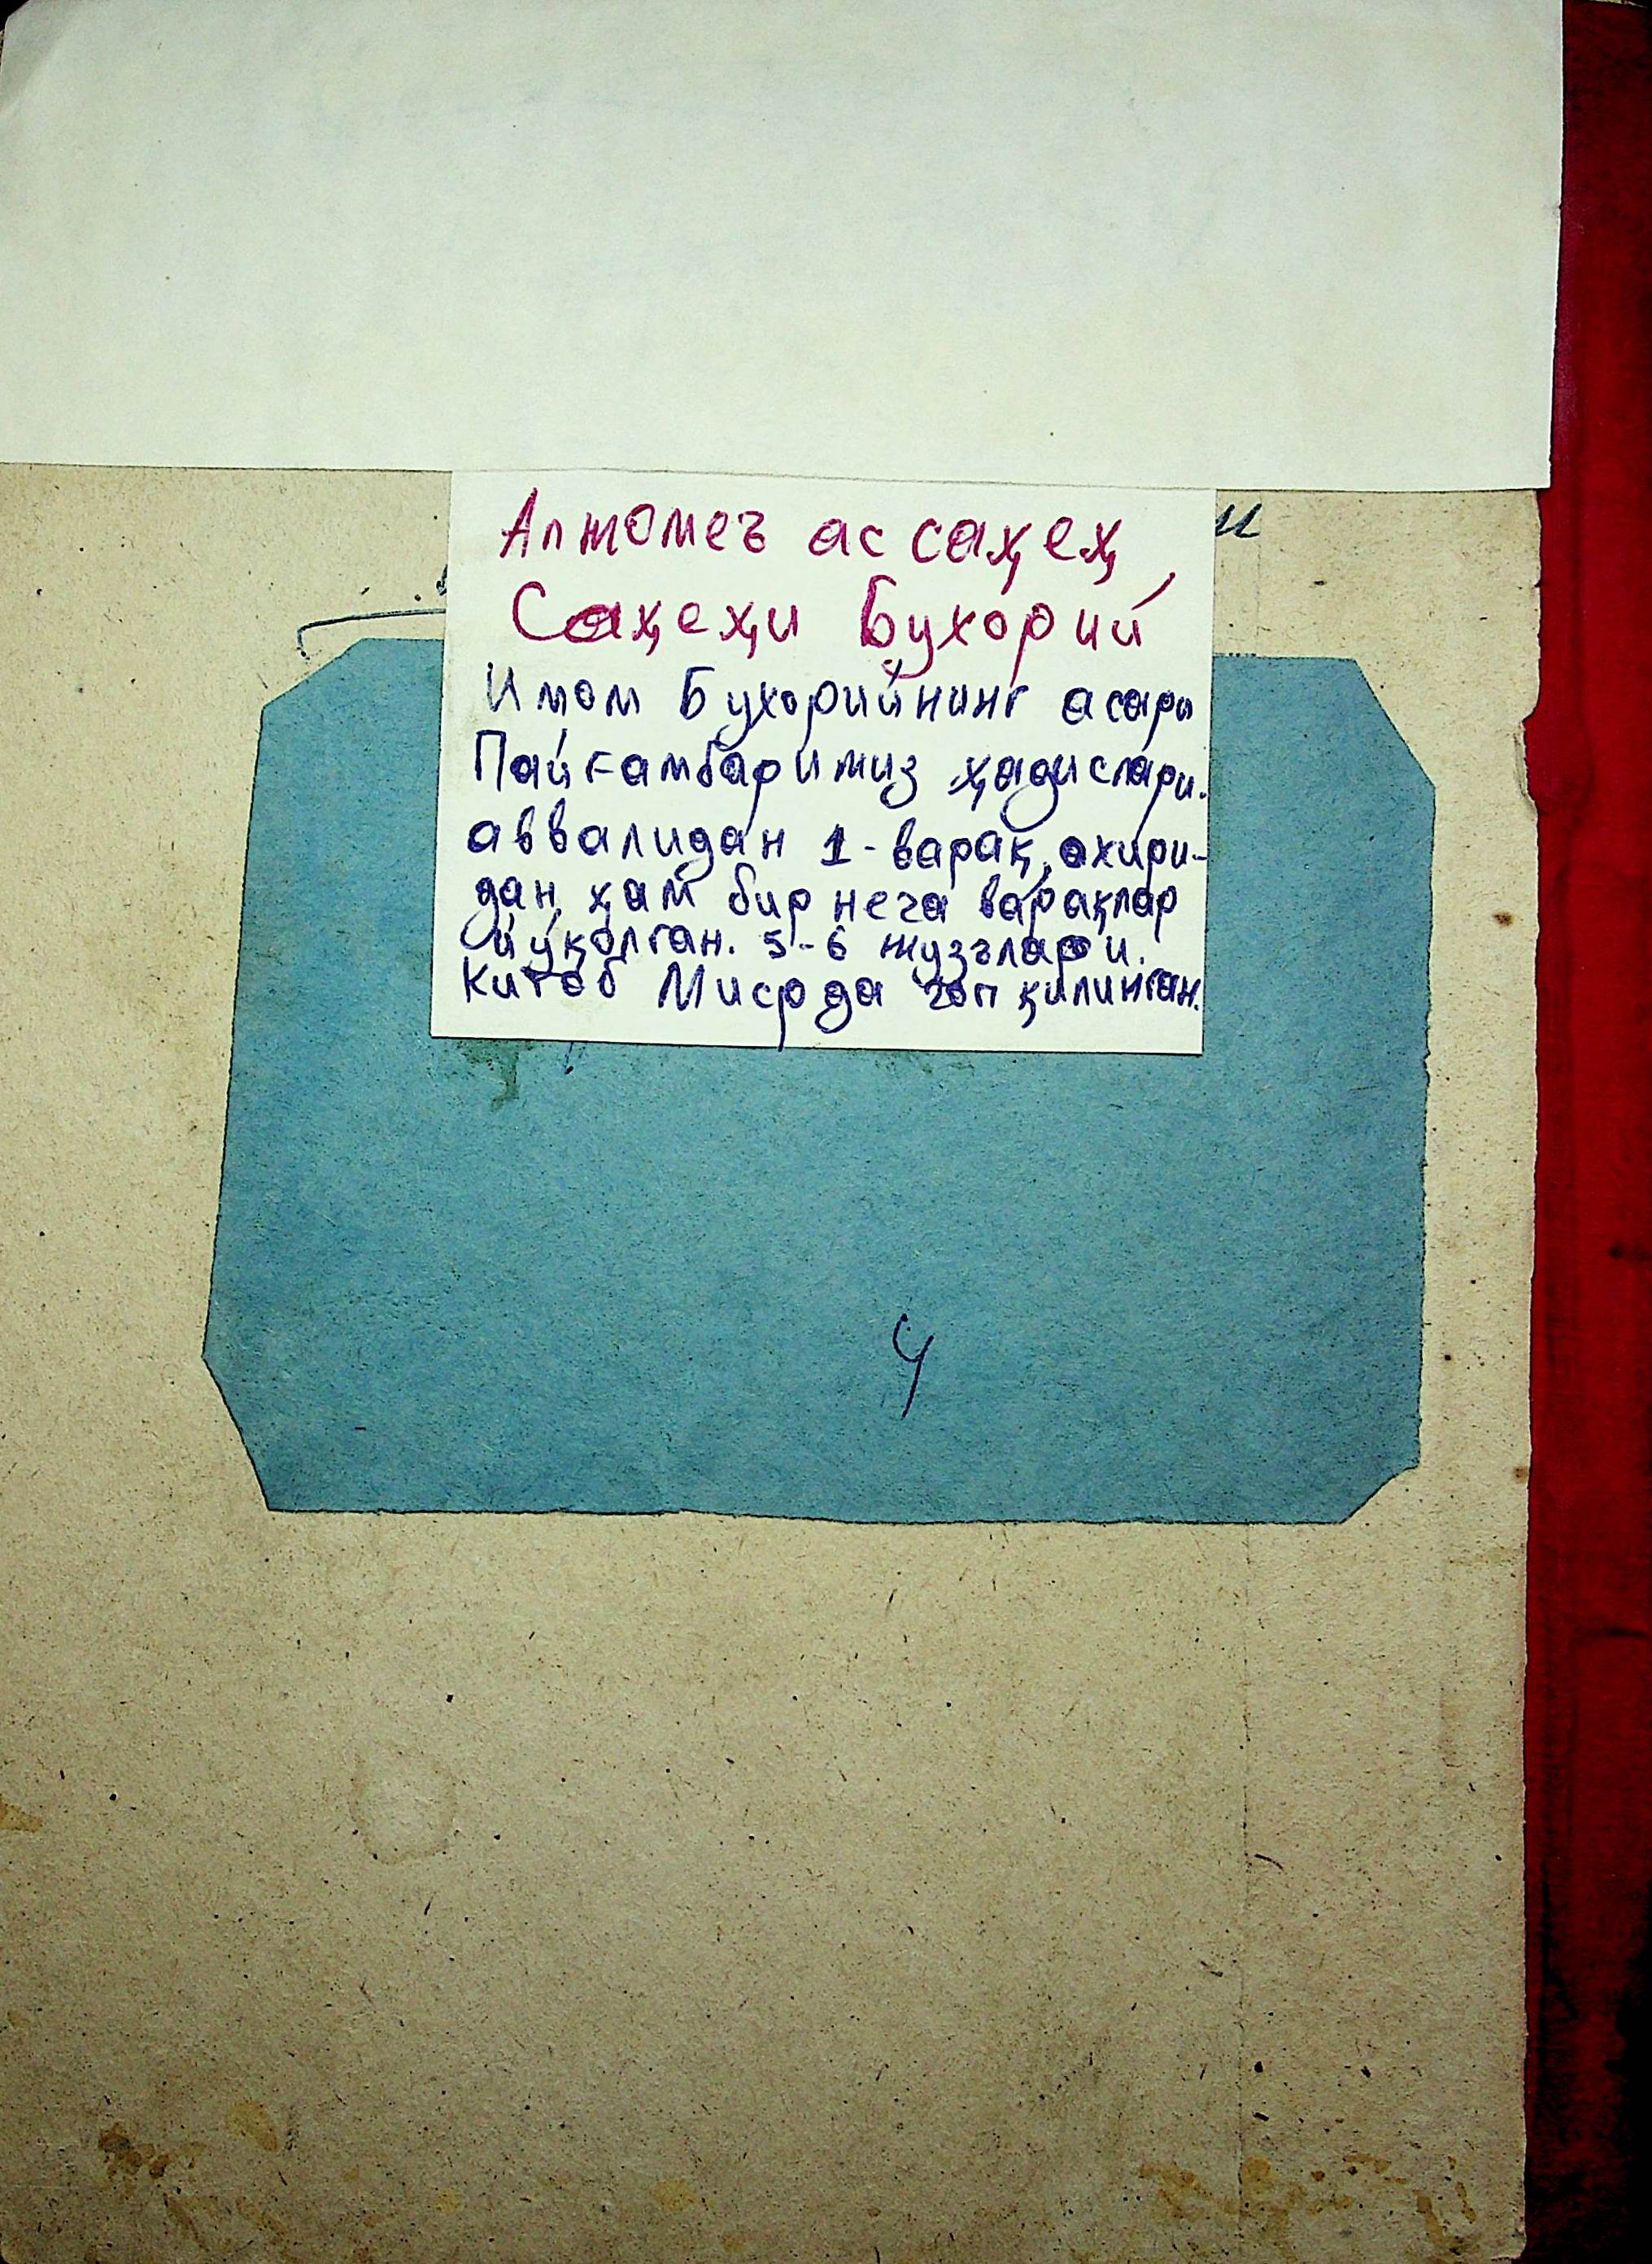 Алжомеъ ас саҳеҳ
Саҳеҳи Бухорий
Имом Бухорийнинг асари
Пайғамбаримиз ҳадислари.
аввалидан 1-варақ, охири-
дан ҳам бир неча варақлар
йўқолган. 5-6 жузълари.
Китоб Мисрда чоп қилинган.